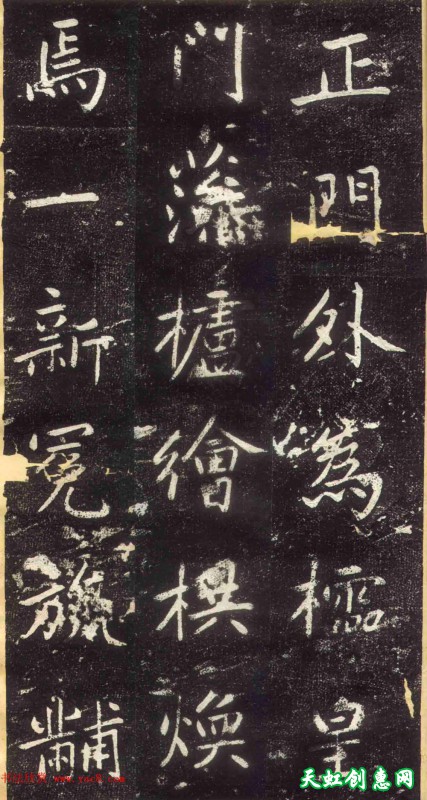 正門外為櫺星
門藻櫨繪栱煥
焉一新冕旒黼
天虹创惠网